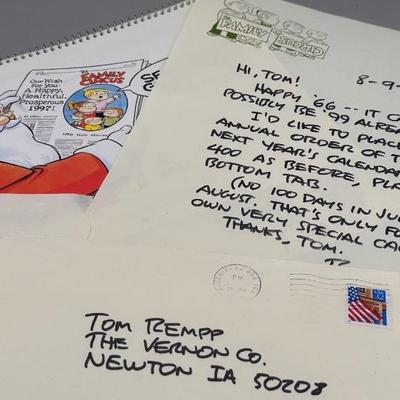 Our Wish
For You-
A Happy,
Healthful,
Prosperous
1997!
FAMILY
CIRCUS
FAMILY CIRCUS
8-9-
HI, TOM!
HAPPY '66 -- IT C
POSSIBLY BE '99 ALREAD
I'D LIKE TO PLACE
ANNUAL ORDER OF T
NEXT YEAR'S CALENDA
400 AS BEFORE, PLA
BOTTOM TAB.
(NO 100 DAYS IN JU
AUGUST. THAT'S ONLY F
OWN VERY SPECIAL CA
THANKS, TOM.
PM
TOM REMPP
THE VERNON CO.
NEWTON IA 50208